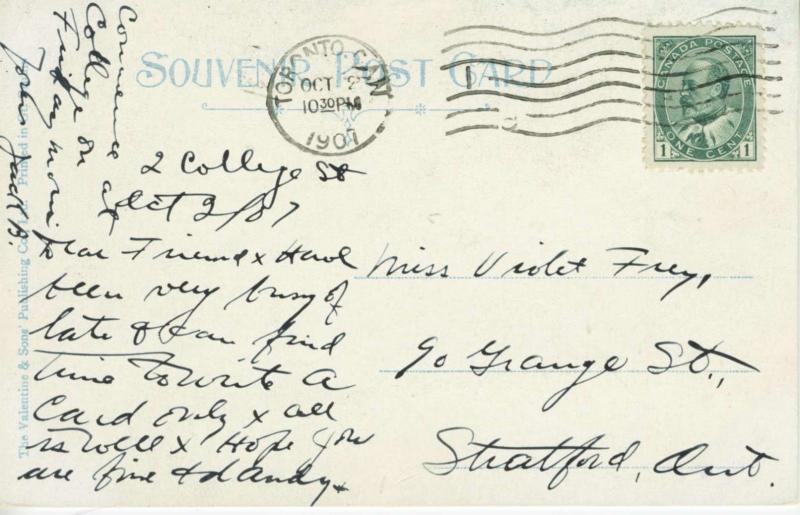 SOUVENIR POST CARD
TORONTO, CAN.
OCT 2
10 30 PM
1907
CANADA POSTAGE
1 ONE CENT 1
2 College St
Oct 2/07
Dear Friend x Have
been very busy of
late & can find
time to write a
Card only x all
is well x Hope you
are fine & dandy x
Commence at
College on
Friday morn
Yours Jack B.
Miss Violet Frey,
90 Grange St.,
Stratford, Ont.
The Valentine & Sons' Publishing Co., Ltd. Printed in